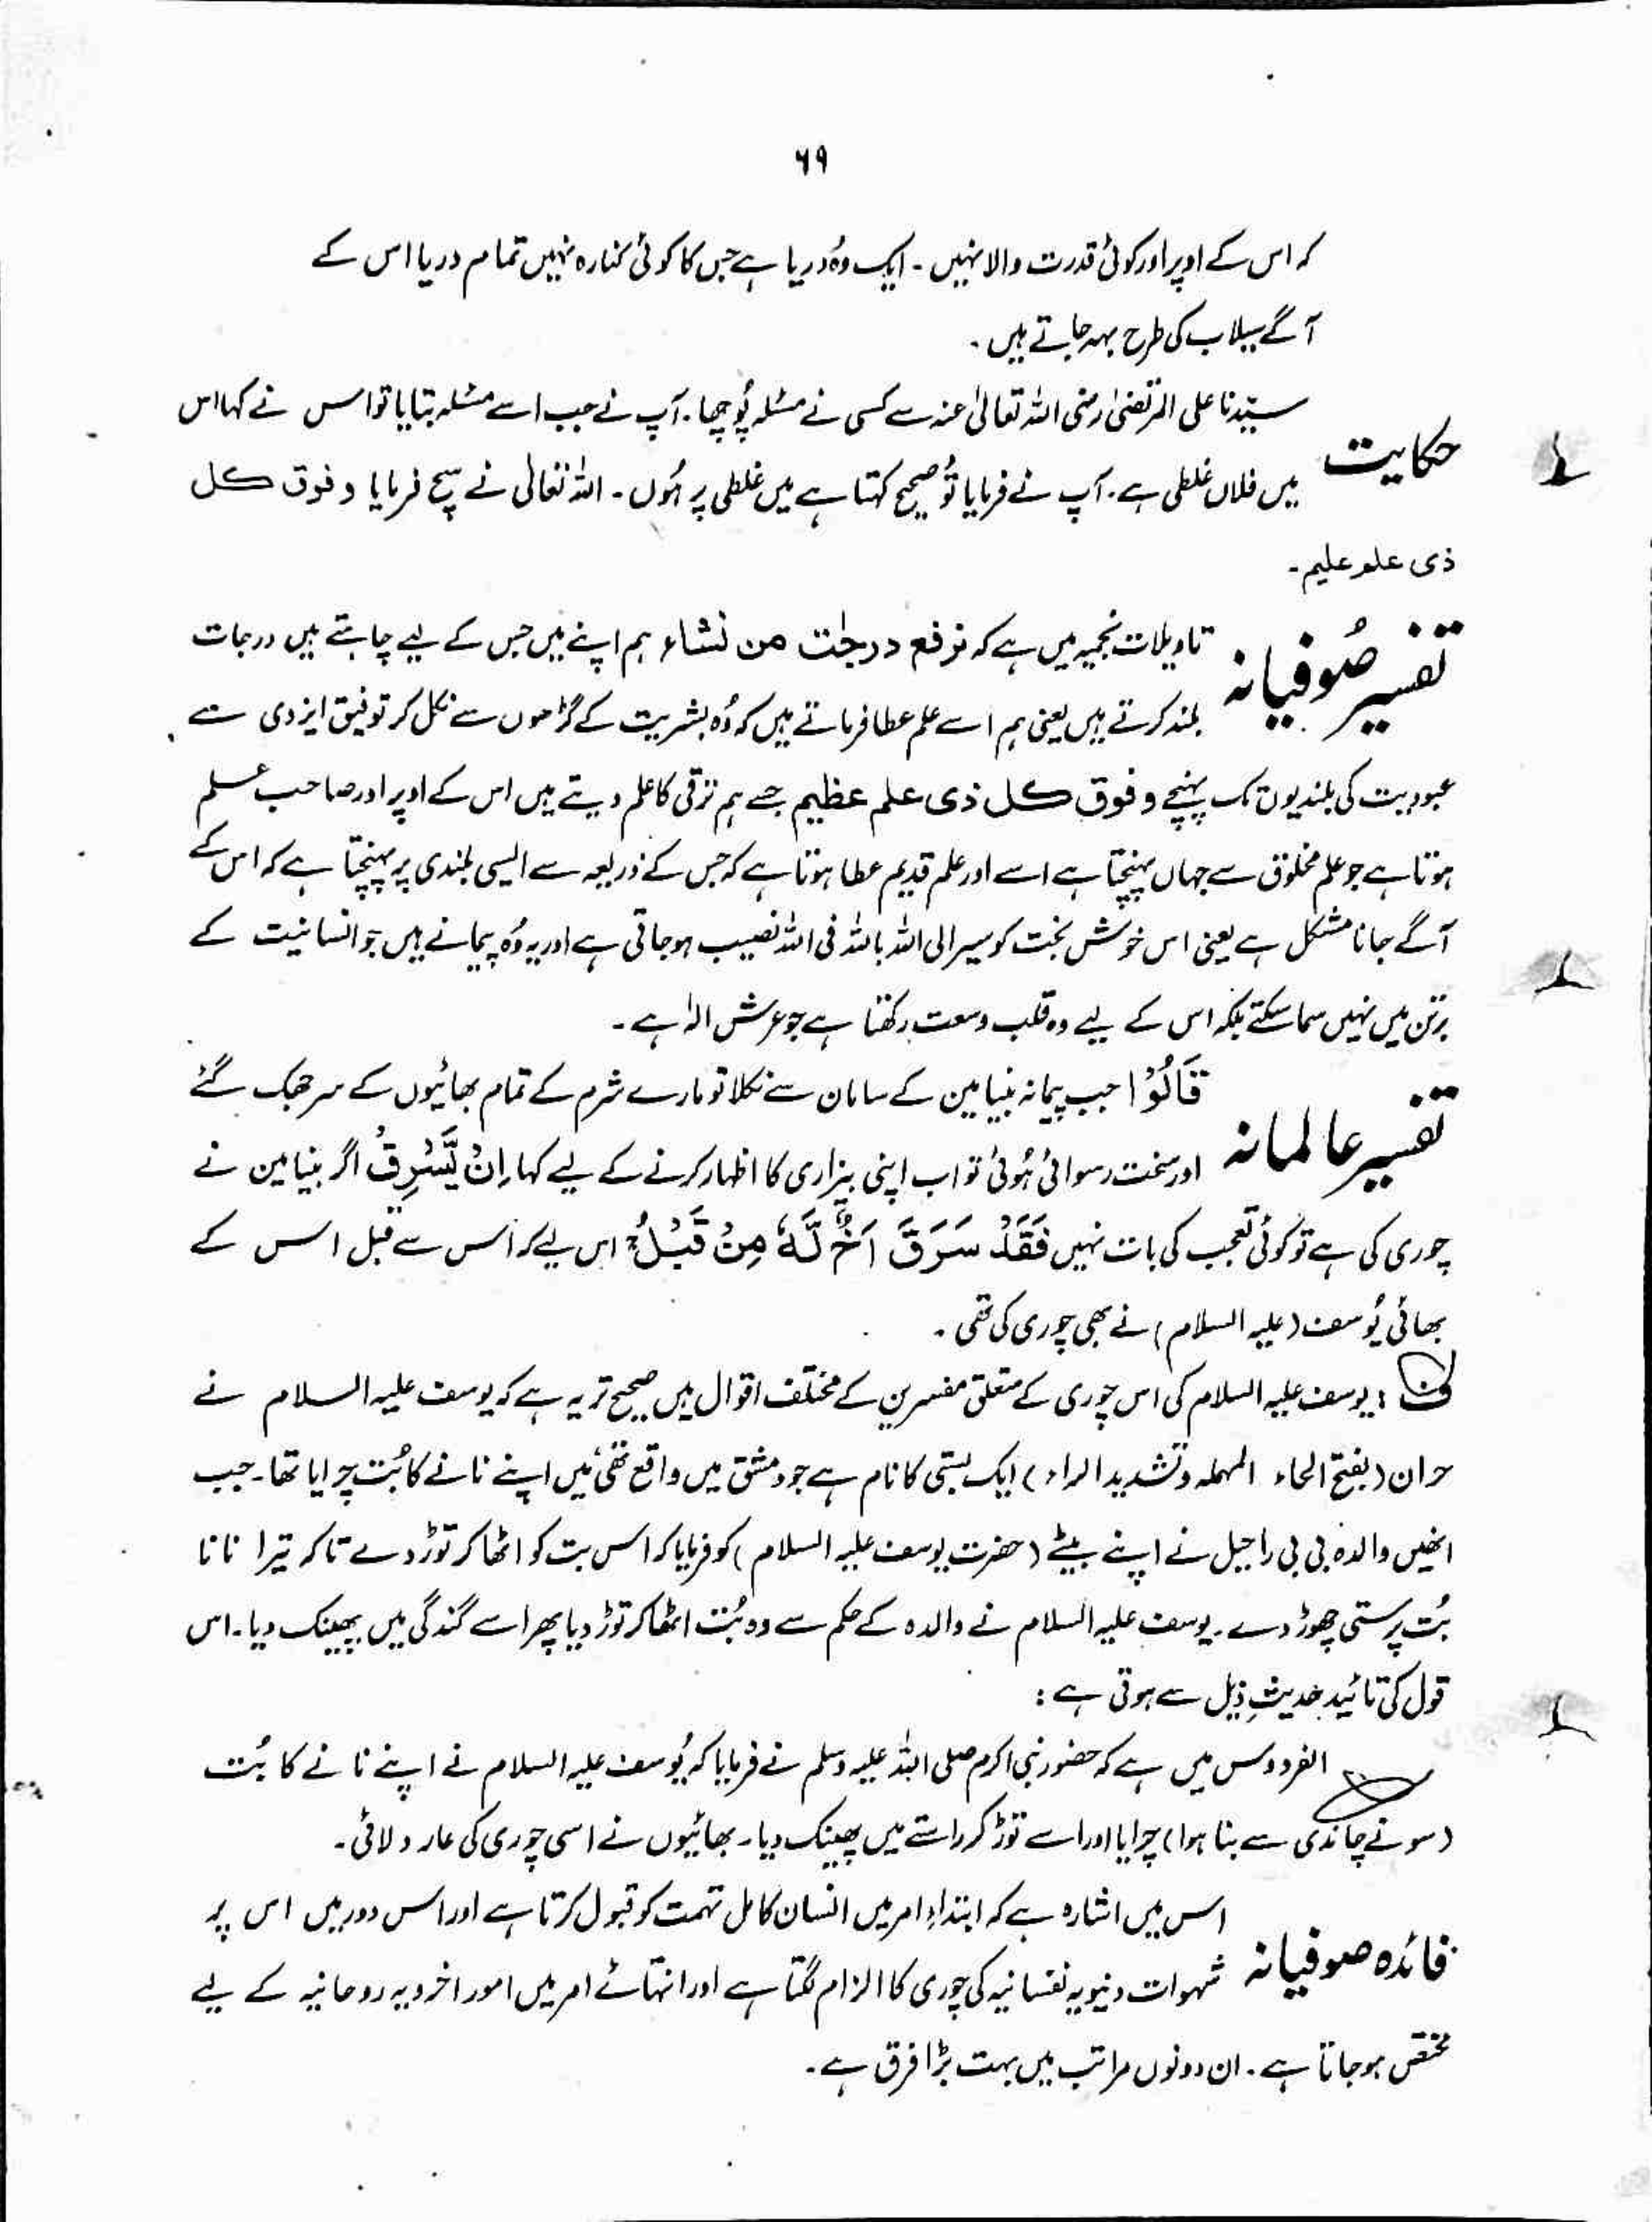 ۶۹
کہ اس کے اوپر اور کوئی قدرت والا نہیں۔ ایک وُہ دریا ہے جس کا کوئی کنارہ نہیں تمام دریا اس کے
آگے سیلاب کی طرح بہہ جاتے ہیں۔
سیّدنا علی المرتضیٰ رضی اللہ تعالیٰ عنہ سے کسی نے مسئلہ پُوچھا۔ آپ نے جب اسے مسئلہ بتایا تو اس نے کہا اس
حکایت
میں فلاں غلطی ہے۔ آپ نے فرمایا تُو صحیح کہتا ہے میں غلطی پر ہُوں۔ اللہ تعالیٰ نے سچ فرمایا وفوق کل
ذی علم علیم۔
تفسیر صُوفیانہ
تاویلات نجمیہ میں ہے کہ نرفع درجٰت من نشاء ہم اپنے میں جس کے لیے چاہتے ہیں درجات
بلند کرتے ہیں یعنی ہم اسے علم عطا فرماتے ہیں کہ وُہ بشریت کے گڑھوں سے نکل کر توفیق ایزدی سے
عبودیت کی بلندیوں تک پہنچے وفوق کل ذی علم عظیم جسے ہم ترقی کا علم دیتے ہیں اس کے اوپر اور صاحب علم
ہوتا ہے جو علم مخلوق سے جہاں پہنچتا ہے اسے اور علم قدیم عطا ہوتا ہے کہ جس کے ذریعہ سے ایسی بلندی پر پہنچتا ہے کہ اس کے
آگے جانا مشکل ہے یعنی اس خوش بخت کو سیر الی اللہ باللہ فی اللہ نصیب ہوجاتی ہے اور یہ وُہ پیمانے ہیں جو انسانیت کے
برتن میں نہیں سما سکتے بلکہ اس کے لیے وہ قلب وسعت رکھتا ہے جو عرش الٰہ ہے۔
تفسیر عالمانہ
قَالُوْٓا جب پیمانہ بنیامین کے سامان سے نکلا تو مارے شرم کے تمام بھائیوں کے سر جھک گئے
اور سخت رسوائی ہُوئی تو اب اپنی بیزاری کا اظہار کرنے کے لیے کہا اِنْ یَّسْرِقْ اگر بنیامین نے
چوری کی ہے تو کوئی تعجب کی بات نہیں فَقَدْ سَرَقَ اَخٌ لَّہٗ مِنْ قَبْلُ اس لیے کہ اس سے قبل اس کے
بھائی یُوسف (علیہ السلام) نے بھی چوری کی تھی۔
ف : یوسف علیہ السلام کی اس چوری کے متعلق مفسرین کے مختلف اقوال ہیں صحیح تر یہ ہے کہ یوسف علیہ السلام نے
حران (بفتح الحاء المہملہ وتشدید الراء) ایک بستی کا نام ہے جو دمشق میں واقع تھی میں اپنے نانے کا بُت چرایا تھا۔ جب
انھیں والدہ بی بی راحیل نے اپنے بیٹے (حضرت یوسف علیہ السلام) کو فرمایا کہ اس بت کو اٹھا کر توڑ دے تاکہ تیرا نانا
بُت پرستی چھوڑ دے۔ یوسف علیہ السلام نے والدہ کے حکم سے وہ بُت اٹھا کر توڑ دیا پھر اسے گندگی میں پھینک دیا۔ اس
قول کی تائید حدیثِ ذیل سے ہوتی ہے :
الفردوس میں ہے کہ حضور نبی اکرم صلی اللہ علیہ وسلم نے فرمایا کہ یُوسف علیہ السلام نے اپنے نانے کا بُت
(سونے چاندی سے بنا ہوا) چرایا اور اسے توڑ کر راستے میں پھینک دیا۔ بھائیوں نے اسی چوری کی عار دلائی۔
فائدہ صوفیانہ
اس میں اشارہ ہے کہ ابتداءِ امر میں انسان کامل تہمت کو قبول کرتا ہے اور اس دور میں اس پر
شہوات دنیویہ نفسانیہ کی چوری کا الزام لگتا ہے اور انتہائے امر میں امور اخرویہ روحانیہ کے لیے
مختص ہوجاتا ہے۔ ان دونوں مراتب میں بہت بڑا فرق ہے۔